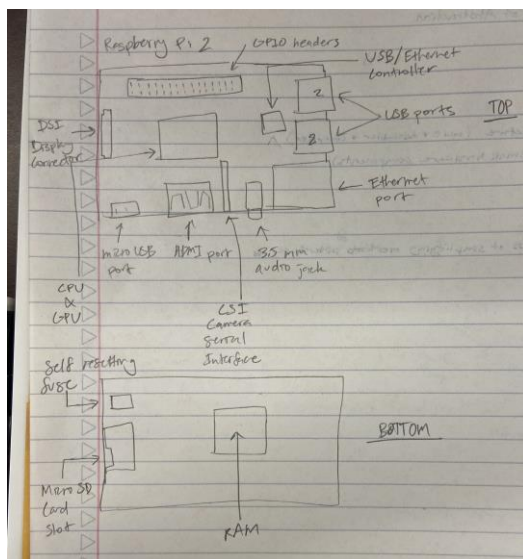 Raspberry Pi 2
GPIO headers
USB/Ethernet
controller
2
2
USB ports
TOP
DSI
Display
Connector
Ethernet
port
micro USB
port
HDMI port
3.5 mm
audio jack
CPU
&
GPU
CSI
Camera
Serial
Interface
Self resetting
fuse
BOTTOM
Micro SD
Card
Slot
RAM